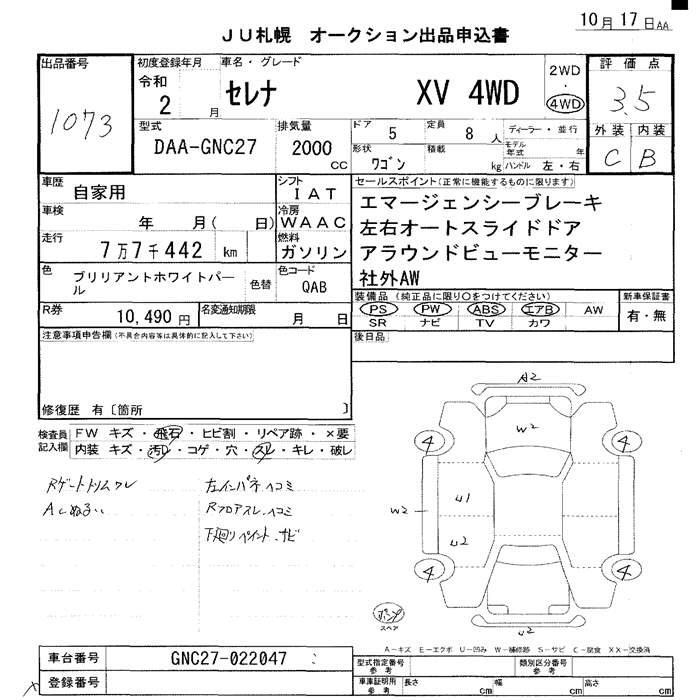 10月17日AA
JU札幌 オークション出品申込書
出品番号
1073
初度登録年月
令和
2 月
車名・グレード
セレナ XV 4WD
2WD
・
4WD
評価点
3.5
外装 内装
C B
型式
DAA-GNC27
排気量
2000
CC
ドア
5
定員
8 人
ディーラー・並行
形状
ワゴン
積載
kg
モデル年式 年
ハンドル 左・右
車歴
自家用
シフト
IAT
セールスポイント(正常に機能するものに限ります)
エマージェンシーブレーキ
左右オートスライドドア
アラウンドビューモニター
社外AW
車検
年 月( 日)
冷房
WAAC
走行
7万7千442 km
燃料
ガソリン
色
ブリリアントホワイトパール
色替
色コード
QAB
装備品 (純正品に限り○をつけてください)
PS PW ABS エアB AW
SR ナビ TV カワ
新車保証書
有・無
R券
10,490円
名変通知期限
月 日
後日品
注意事項申告欄(不具合内容等は具体的に記入して下さい)
修復歴 有〔箇所 〕
検査員
記入欄
FW キズ・飛石・ヒビ割・リペア跡・×要
内装 キズ・汚レ・コゲ・穴・スレ・キレ・破レ
Rゲートトリムワレ
Aしぬるい
左インパネヘコミ
Rフロアスレ、ヘコミ
下廻りペイント、サビ
A2
W2
4
4
W2
U1
U2
4
4
パンク
スペア
U2
A-キズ E-エクボ U-凹み W-補修跡 S-サビ C-腐食 XX-交換済
車台番号
GNC27-022047
登録番号
型式指定番号
参考
類別区分番号
参考
車庫証明用
参考
長さ cm
幅 cm
高さ cm